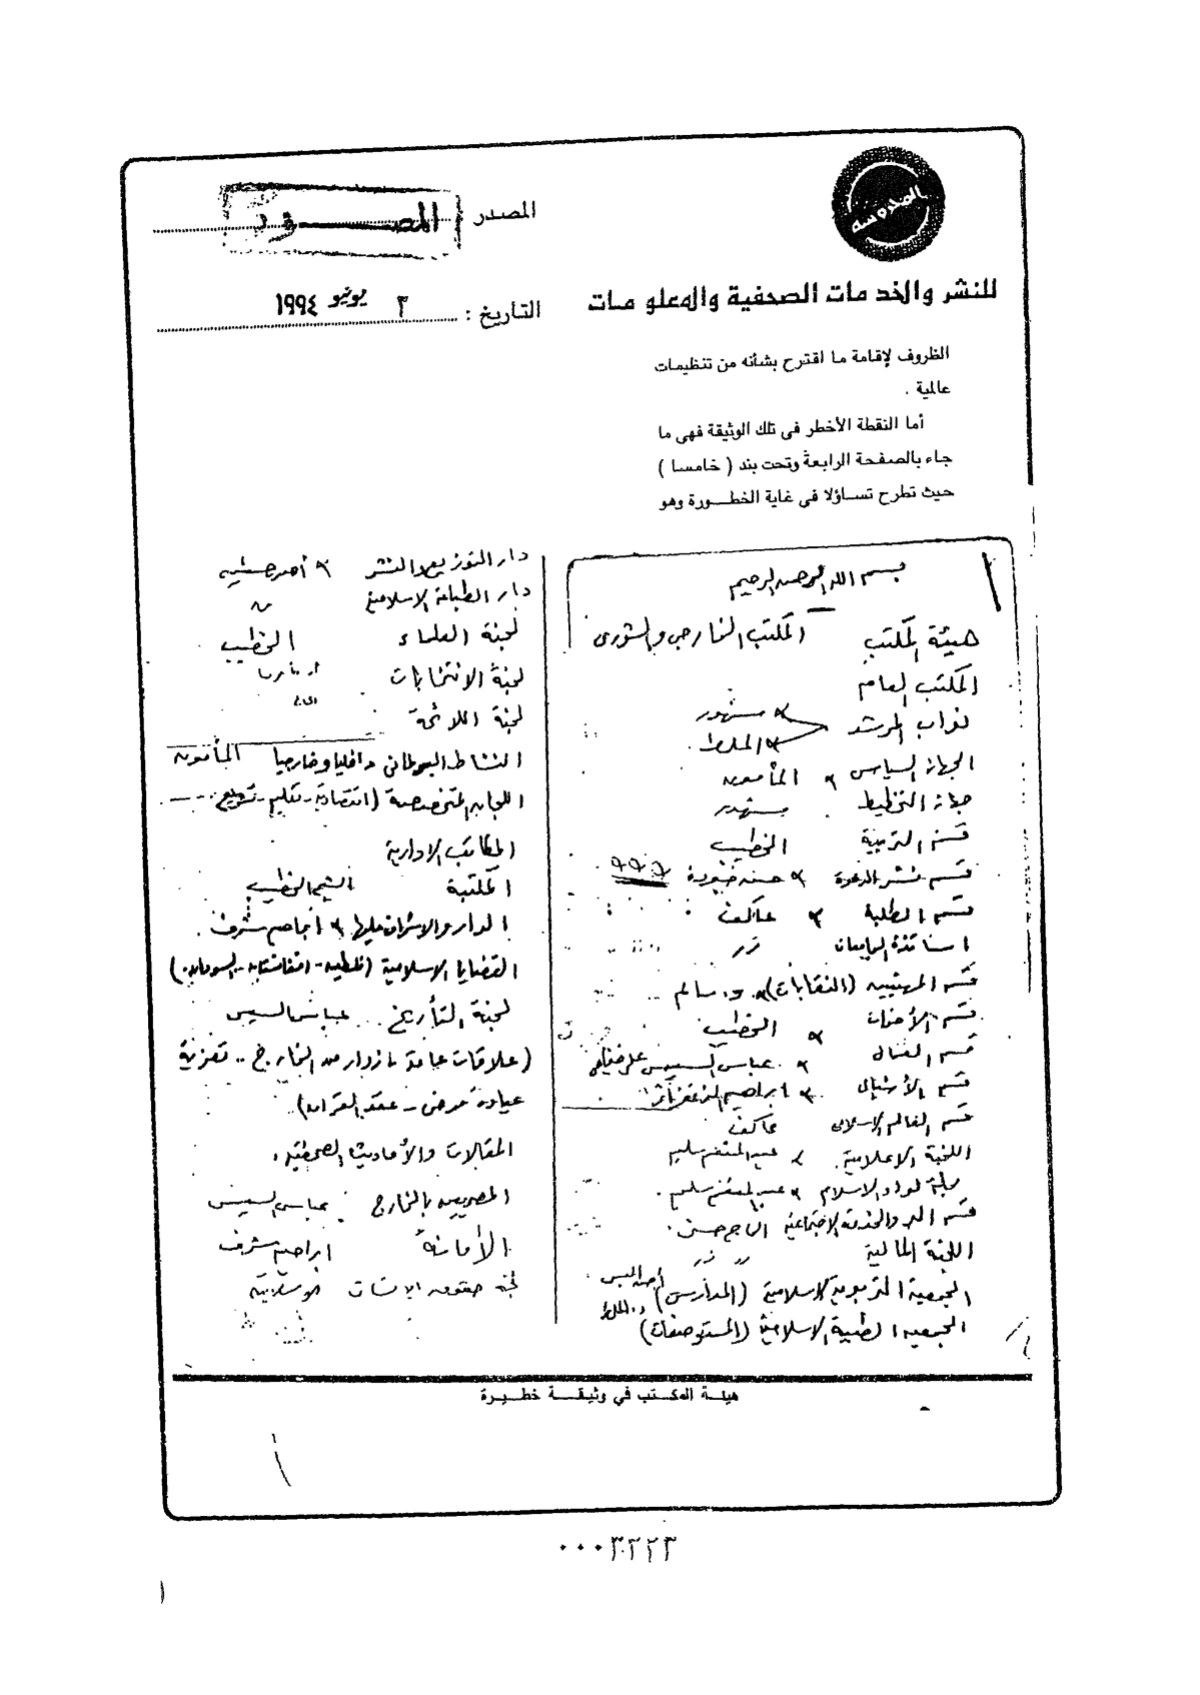 المدونة
المصدر : المصور
للنشر والخدمات الصحفية والمعلومات
التاريخ : ٣ يونيو ١٩٩٤
الظروف لإقامة ما اقترح بشأنه من تنظيمات
عالمية .
أما النقطة الأخطر فى تلك الوثيقة فهى ما
جاء بالصفحة الرابعة وتحت بند ( خامسا )
حيث تطرح تساؤلا فى غاية الخطورة وهو
بسم الله الرحمن الرحيم
هيئة المكتب المكتب الخارجى والشورى
المكتب العام
نواب المرشد مشهور
الملط
الجهاز السياسى المأمون
جهاز التخطيط مشهور
قسم التربية الخطيب
قسم نشر الدعوة حسن جودة ؟؟؟
قسم الطلبة عاكف
اساتذة الجامعات زر
قسم المهنيين (النقابات) د. سالم
قسم الأخوات الخطيب
قسم العمال عباس السيسى
قسم الأشبال ابراهيم
قسم العالم الإسلامى عاكف
اللجنة الاعلامية عبد المنعم سليم
مجلة لواء الاسلام عبد المنعم سليم
قسم البر والخدمة الاجتماعية الحاج حسن
اللجنة المالية " زر
الجمعية التربوية الإسلامية (المدارس)
الجمعية الطبية الاسلامية (المستوصفات) د. الملط
دار التوزيع والنشر أحمد حسنين
دار الطباعة الاسلامية "
لجنة العلماء الخطيب
لجنة الانتخابات
لجنة اللائحة
النشاط البرلمانى داخليا وخارجيا المأمون
اللجان المتخصصة (اقتصادية - تعليم - تشريع ----
المكاتب الادارية
المكتبة الشيخ الخطيب
الدار والاشراف عليها ابراهيم شرف
القضايا الاسلامية (فلسطين - افغانستان - السودان)
لجنة التأريخ .. عباس السيسى
(علاقات عامة مازوار من الخارج .. تعزية
عيادة مرضى - عقد القران)
المقالات والأحاديث الصحفية
المصريين بالخارج عباس السيسى
الأمانة ابراهيم شرف
لجنة حقوق الانسان الاسلامية
هيئة المكتب في وثيقة خطيرة
٠٠٠٣٢٢٣